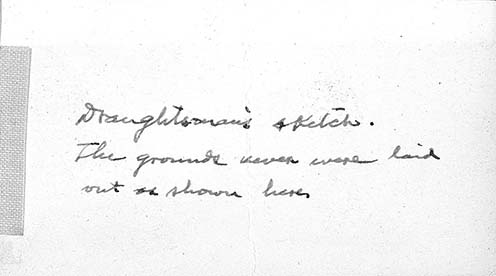 Draughtsman's sketch.
The grounds never were laid
out as shown here.